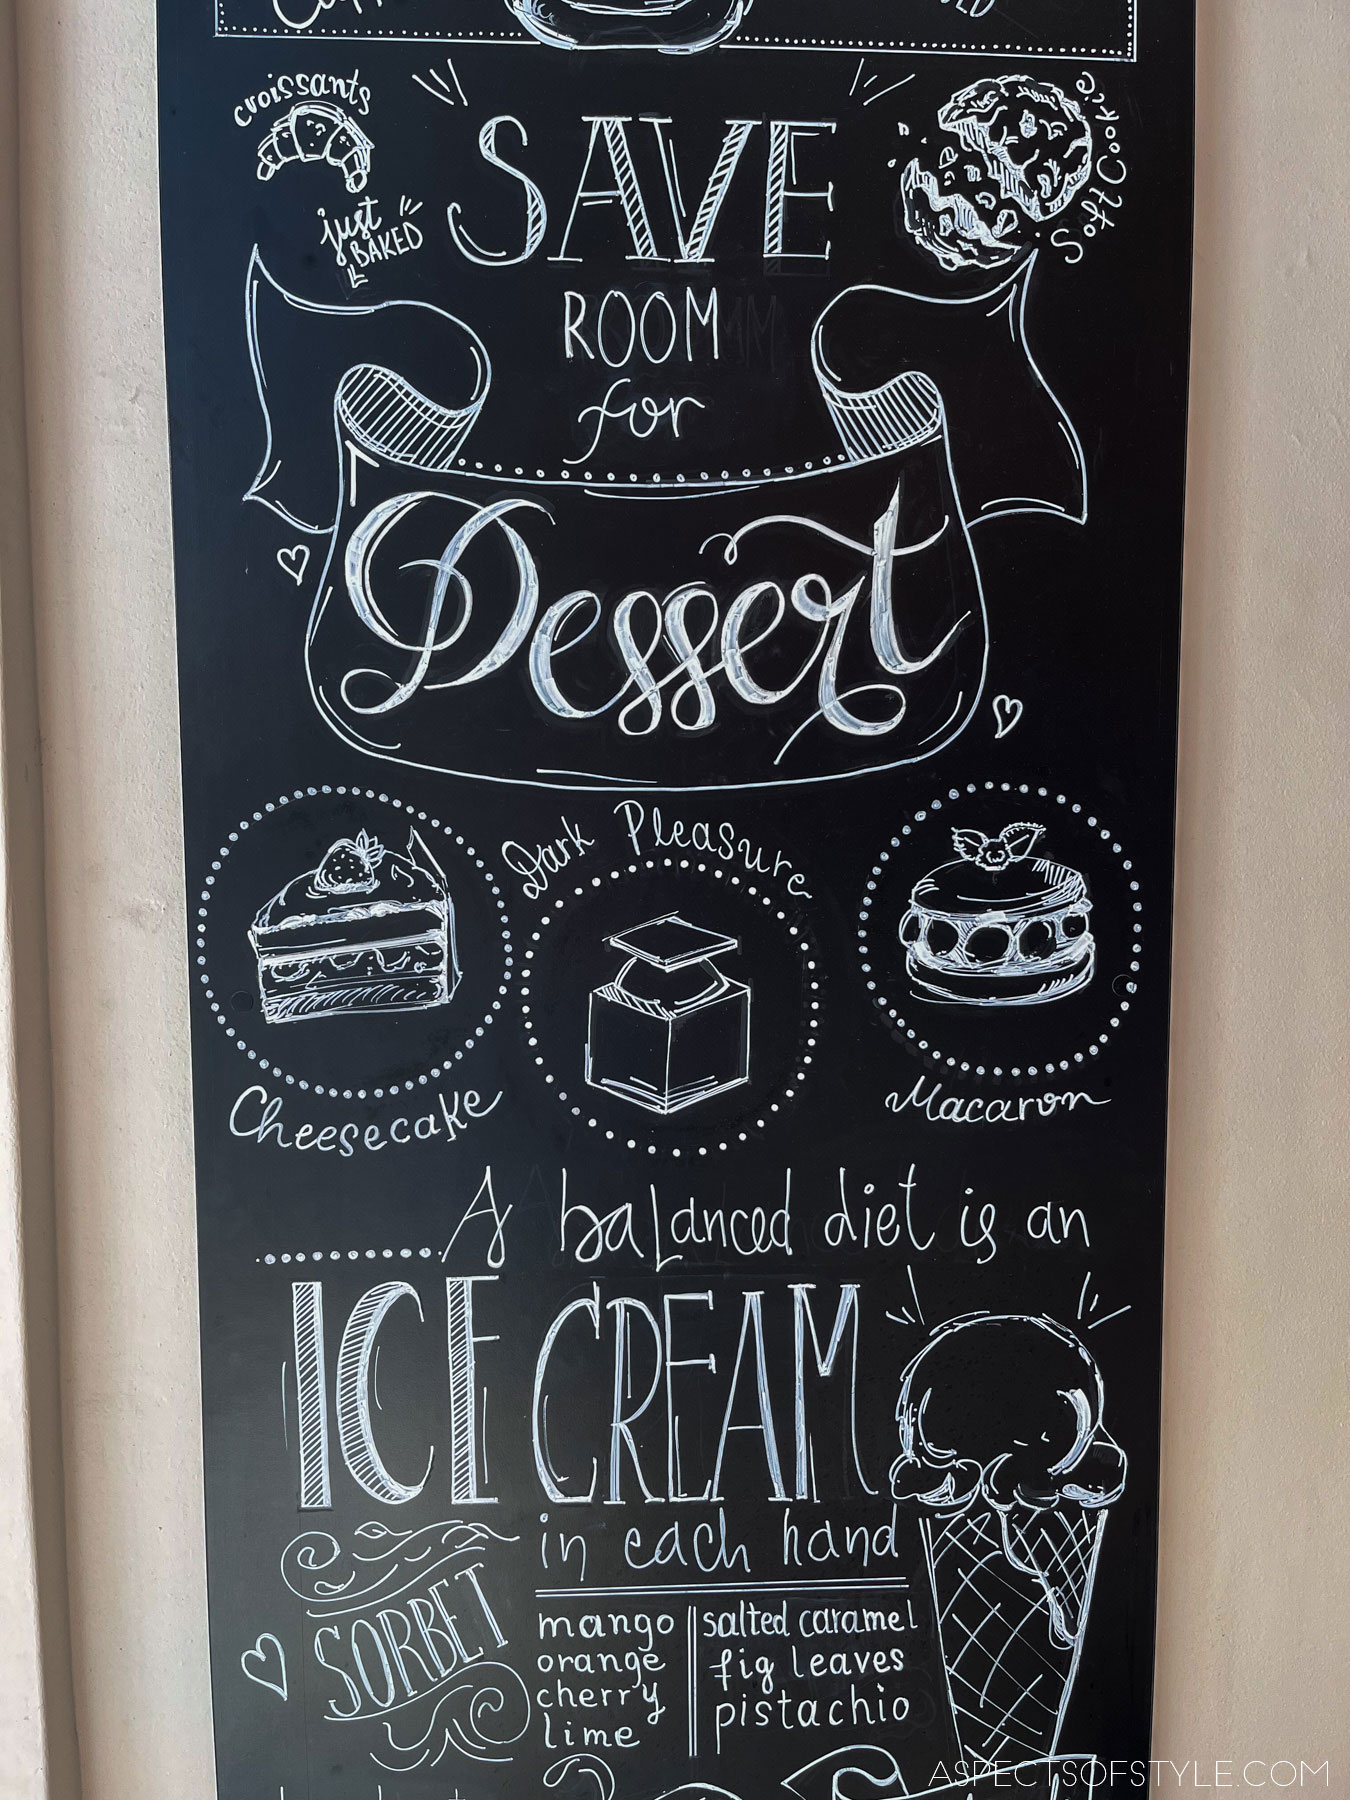 croissants
just
BAKED
SAVE
Soft Cookie
ROOM
for
Dessert
Dark Pleasure
Cheesecake
Macaron
A balanced diet is an
ICE CREAM
in each hand
SORBET
mango
orange
cherry
lime
salted caramel
fig leaves
pistachio
ASPECTSOFSTYLE.COM